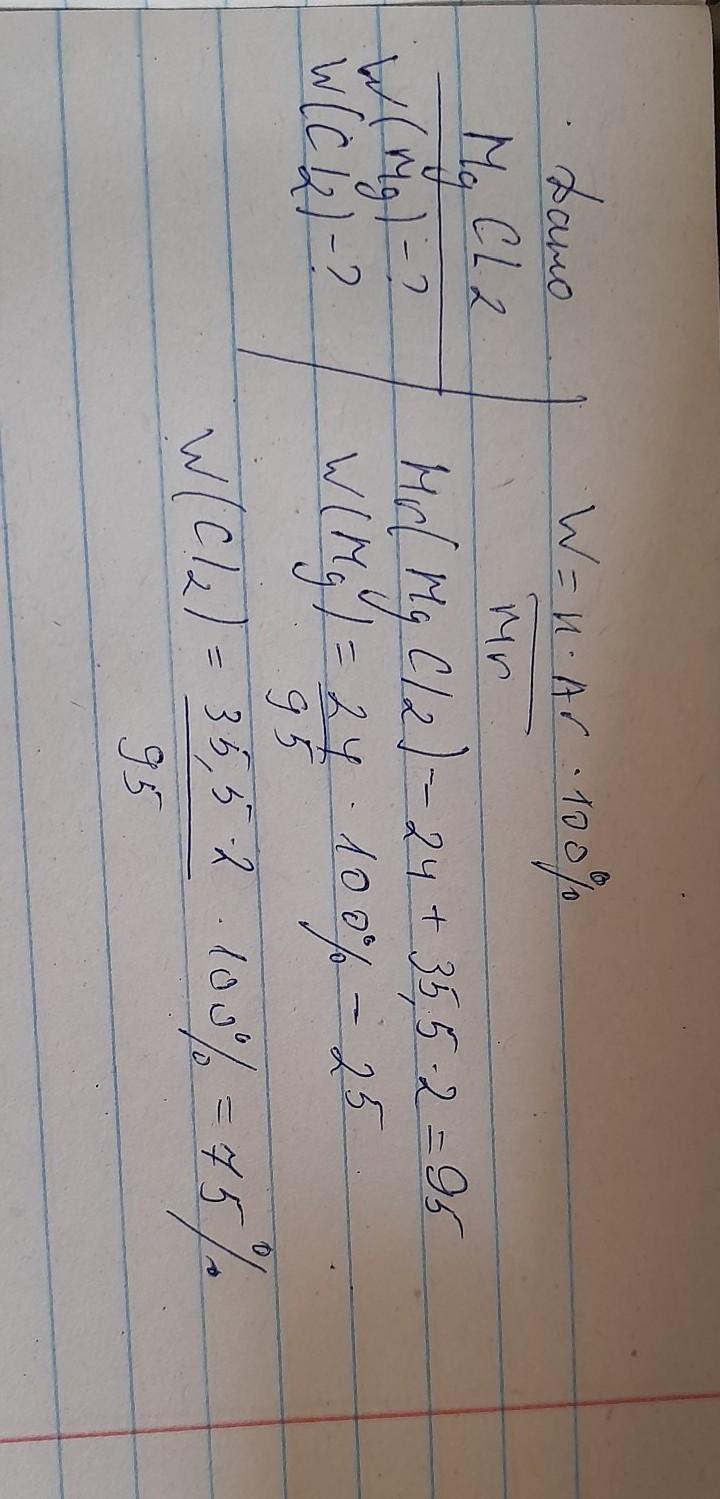 Дано
MgCl2
W(Mg)-?
W(Cl2)-?
W = n · Ar · 100%
Mr
Mr(MgCl2) - 24 + 35,5 · 2 = 95
W(Mg) = 24 · 100% - 25
95
W(Cl2) = 35,5 · 2 · 100% = 75%
95